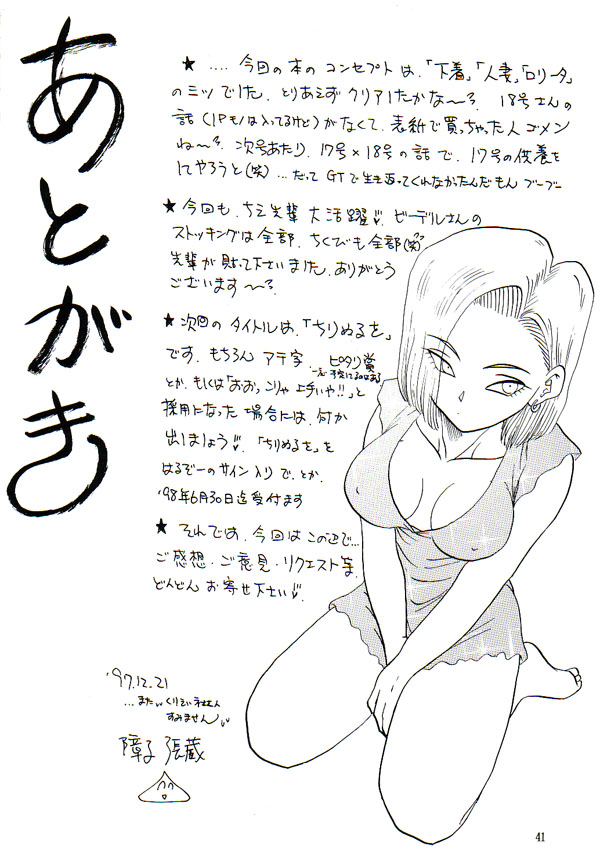 あとがき
★ .... 今回の本のコンセプトは、「下着」「人妻」「ロリータ」
の三ツでした。とりあえずクリアしたかな〜? 18号さんの
話(1Pモノは入ってるけど)がなくて、表紙で買っちゃった人ゴメン
ね〜? 次号あたり、17号×18号の話で、17号の供養を
してやろうと(笑)...だってGTで生き返ってくれなかったんだもんブーブー
★ 今回も、ちえ先輩大活躍 ビーデルさんの
ストッキングは全部、ちくびも全部(笑)
先輩が貼って下さいました。ありがとう
ございます〜
★ 次回のタイトルは、「ちりぬるを」
です。もちろんアテ字、ピタリ賞
とか、もしくは「おおっこりゃ上手いや!!」と
採用になった場合には、何か
出しましょう 「ちりぬるを」を
はるぞーのサイン入りで、とか。
'98年6月30日迄受付ます
★ それでは、今回はこの辺で...
ご感想・ご意見・リクエスト等、
どんどんお寄せ下さい
'97.12.21
...また
すみません
障子張蔵
41